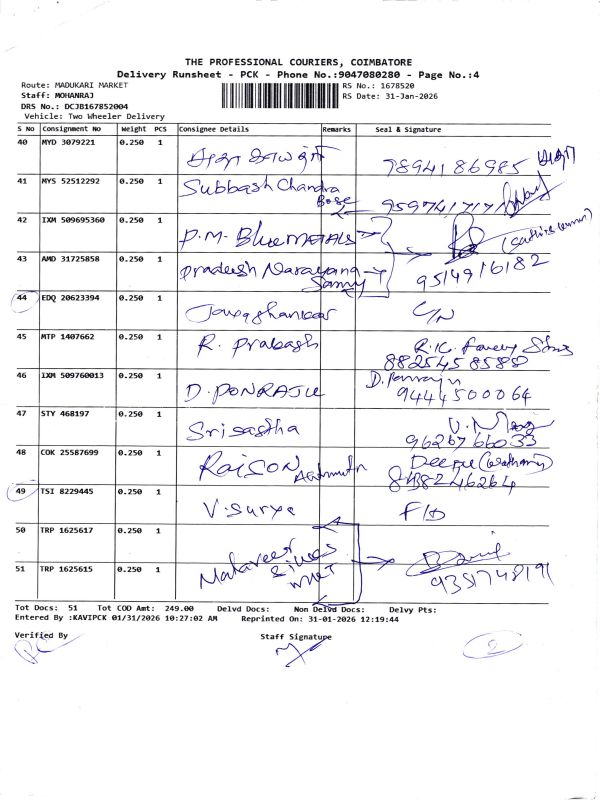 THE PROFESSIONAL COURIERS, COIMBATORE
Delivery Runsheet - PCK - Phone No.:9047080280 - Page No.:4
Route: MADUKARI MARKET
Staff: MOHANRAJ
DRS No.: DCJB167852004
Vehicle: Two Wheeler Delivery
RS No.: 1678520
RS Date: 31-Jan-2026
S No Consignment No Weight PCS Consignee Details Remarks Seal & Signature
40 MYD 3079221 0.250 1 7894186985
41 MYS 52512292 0.250 1 Subbash Chandra Bose 9597417171
42 IXM 509695360 0.250 1 P.M. Bluemetals
43 AMD 31725858 0.250 1 Pradeesh Narayana Samy 9514916182
44 EDQ 20623394 0.250 1 C/N
45 MTP 1407662 0.250 1 R. Prabagh 8825458588
46 IXM 509760013 0.250 1 D. PONRAJU D. Ponraju 9444500064
47 STY 468197 0.250 1 Srisastha 9626766033
48 COK 25587699 0.250 1 RAISON Deepu 8438246264
49 TSI 8229445 0.250 1 V. Surya F/D
50 TRP 1625617 0.250 1 Mahaveer
51 TRP 1625615 0.250 1 9351748191
Tot Docs: 51 Tot COD Amt: 249.00 Delvd Docs: Non Delvd Docs: Delvy Pts:
Entered By :KAVIPCK 01/31/2026 10:27:02 AM Reprinted On: 31-01-2026 12:19:44
Verified By Staff Signature